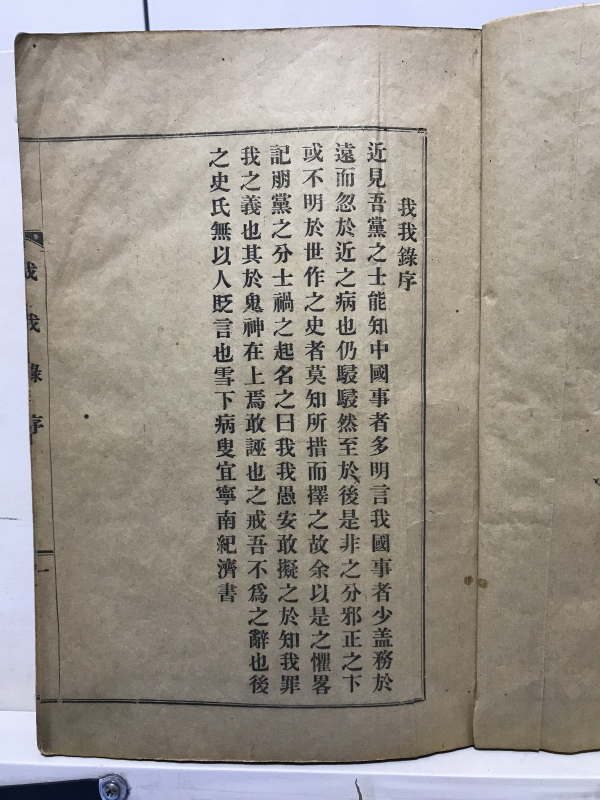 我我錄序
近見吾黨之士能知中國事者多明言我國事者少盖務於
遠而忽於近之病也仍駸駸然至於後是非之分邪正之卞
或不明於世作之史者莫知所措而擇之故余以是之懼畧
記朋黨之分士禍之起名之曰我我愚安敢擬之於知我罪
我之義也其於鬼神在上焉敢誣也之戒吾不爲之辭也後
之史氏無以人貶言也雪下病叟宜寧南紀濟書
我我錄序
一